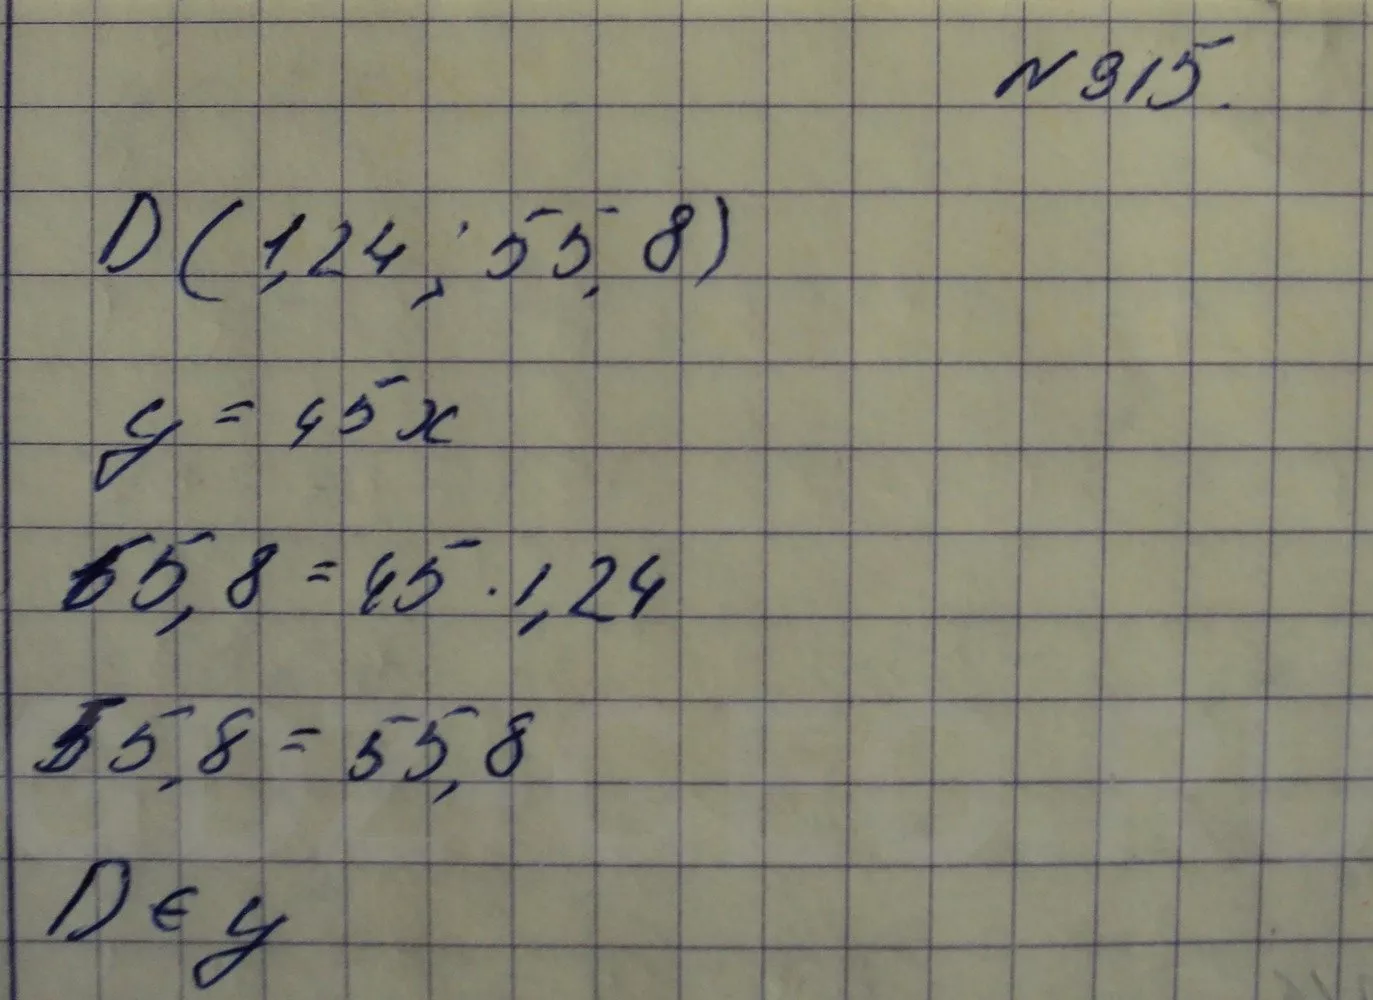 N 315.
D (1,24; 55,8)
y = 45x
55,8 = 45 · 1,24
55,8 = 55,8
D ∈ y